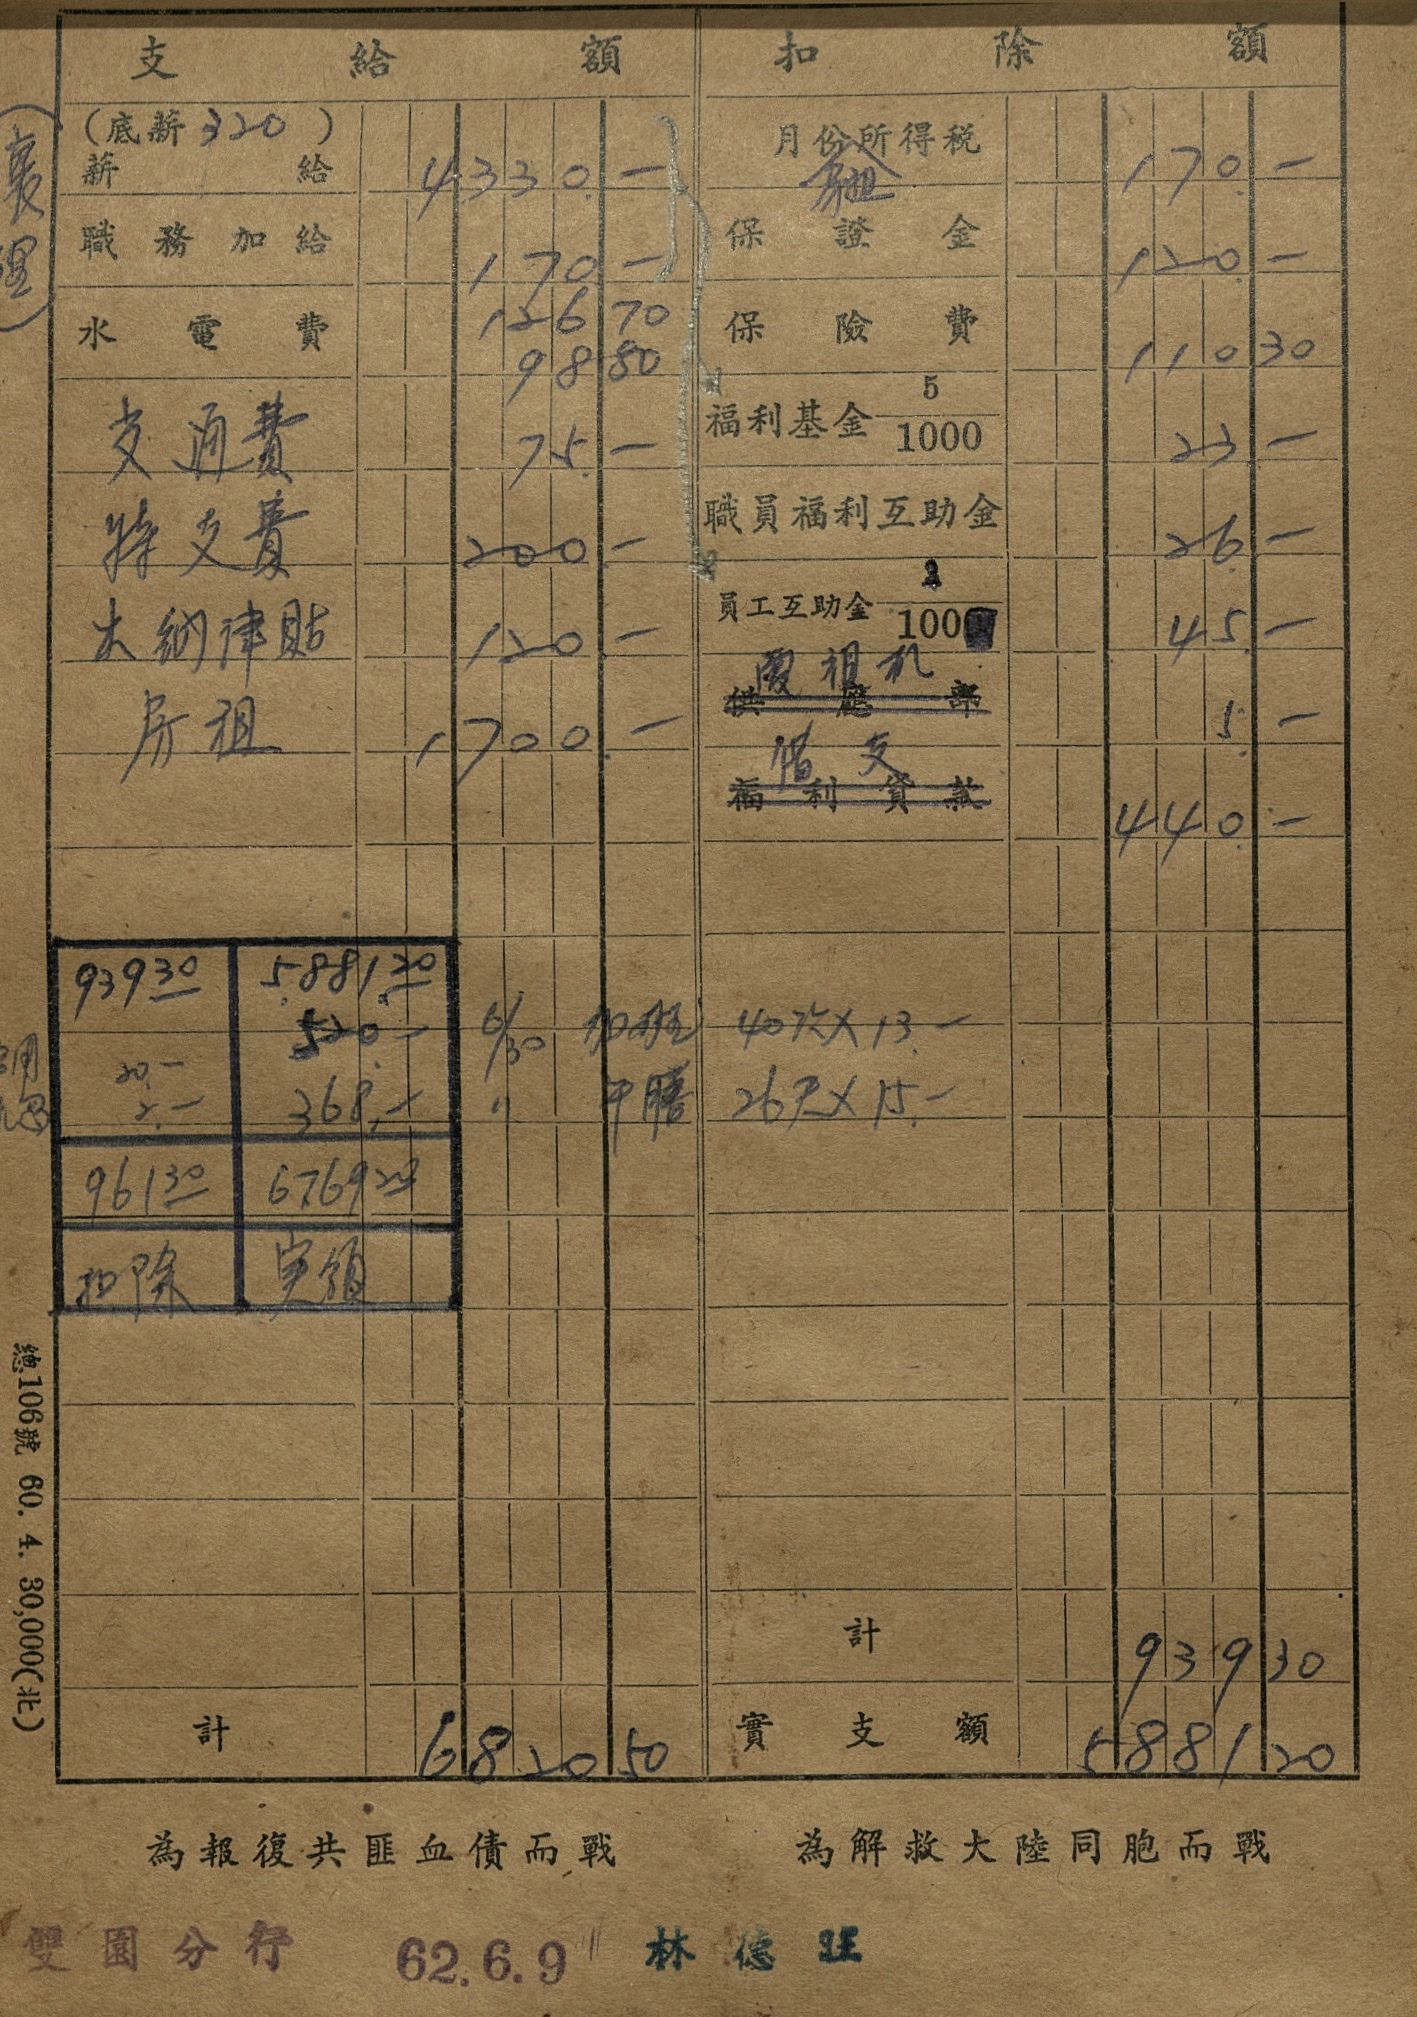 支給額
(底薪320)
薪給 4330.—
職務加給 170.—
水電費 126 70
98 80
交通費 75.—
特支費 200.—
出納津貼 120.—
房租 1700.—
939 30 5.881.20
20.— 520.— 6/30 加班 40次×13.—
2.— 368.— 〃 午膳 26天×15.—
961 30 6769 20
扣除 实領
計 6820 50
扣除額
月份所得稅 170.—
保證金 120.—
保險費 110 30
福利基金 5/1000 23.—
職員福利互助金 26.—
員工互助金 1/100 45.—
供應部 5.—
借支
福利貸款 440.—
計 939 30
實支額 5881 20
(襄理)
總106號 60. 4. 30,000(北)
為報復共匪血債而戰 為解救大陸同胞而戰
雙園分行 62.6.9 林德旺